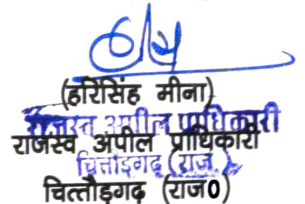 (हरिसिंह मीना)
राजस्व अपील प्राधिकारी
राजस्व अपील प्राधिकारी
चित्तोड़गढ़ (राज.)
चित्तौड़गढ़ (राज0)